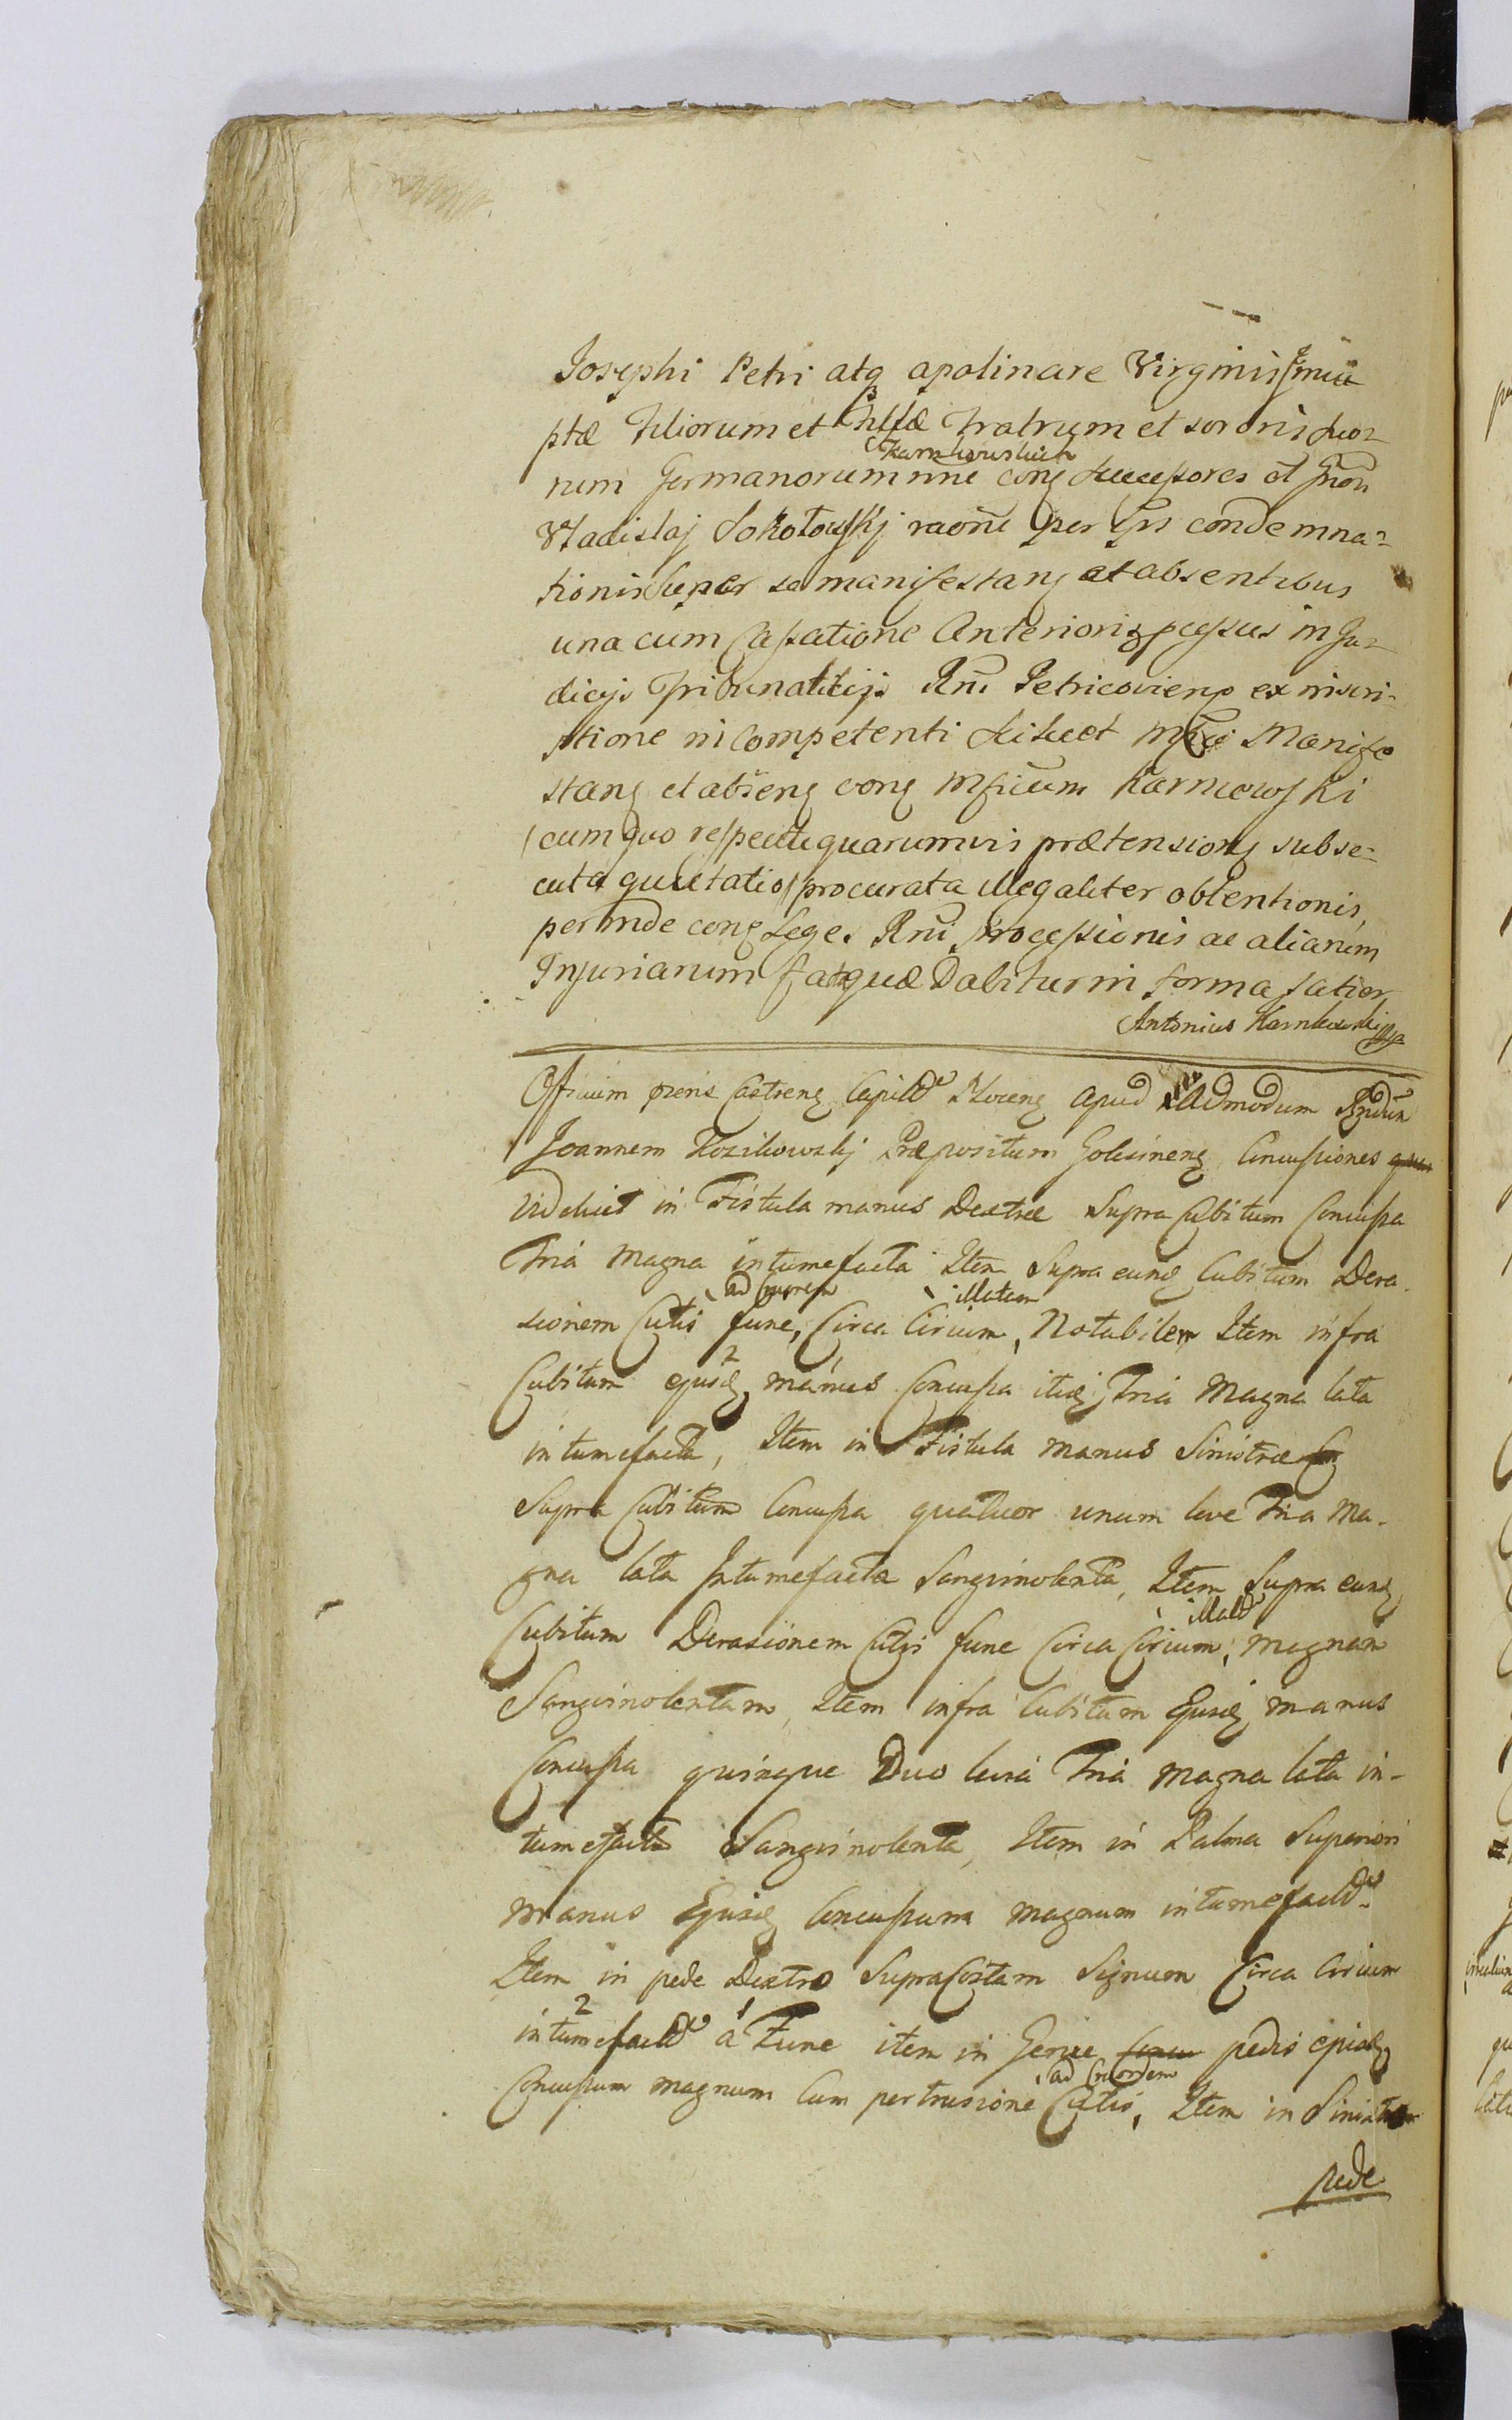 Josephi Petri atq apolinare Virginis
ptæ Filiorum et Fratrum et sororis suor=
Karnkowskich
num Germanorum nne conq successores et Gnon
Vladislaj Sokołowskj raone per Ips condemna=
tionis super se manifestanq et absentibus
una cum Cassatione Anterioris pcessus in Ju=
dicijs Tribunalitijs Rni Petricoviens ex inscri-
ptione incompetenti scilicet Mfici Manife
stanq et absenq conq Mficum Karnkowski
cum quo respectu quarumvis prætensionq subse=
cuta quietatio procurata illegaliter obtentionis,
perinde conq Leges Rni processionis ac aliarum
Injuriarum fatq quæ Dabitur in forma latior
Antonius Karnkowski mpa
Officium prens Castrenq Capitle Plocenq apud Admodum Rndum
Joannem Kosikowskj Præpositum Goleninenq Concussiones
vidt in Fistula manus Dextræ Supra Cubitum Concussa
Tria Magna intumefacta Item Supra eunq Cubitum Dera
ad cruorem illatam
sionem Cutis fune, Circa Circum, Notabilem Item infra
2
Cubitum ejusq manus Concussa itiq Tria Magna lata
intumefacta, Item in Fistula manus Sinistræ
Supra Cubitum Concussa quatuor unum leve Tria Ma-
gna lata Intumefacta Sangvinolenta, Item Supra eunq
illat
Cubitum Derasionem Cutis fune Circa Circum, magnam
Sangvinolentam, Item infra Cubitum Ejusq manus
Concussa quinque Duo levia Tria magna lata in-
tumefacta Sangvinolenta, Item in Palma Superiori
manus Ejusq Concussum magnum intumefact
Item in pede Dextro Supra Costam Signum Circa Circum
2 1
intumefact á Fune item in Genue pedis ejusq
ad cruorem
Concussum magnum Cum pertusione Cutis, Item in Sinistro
pede